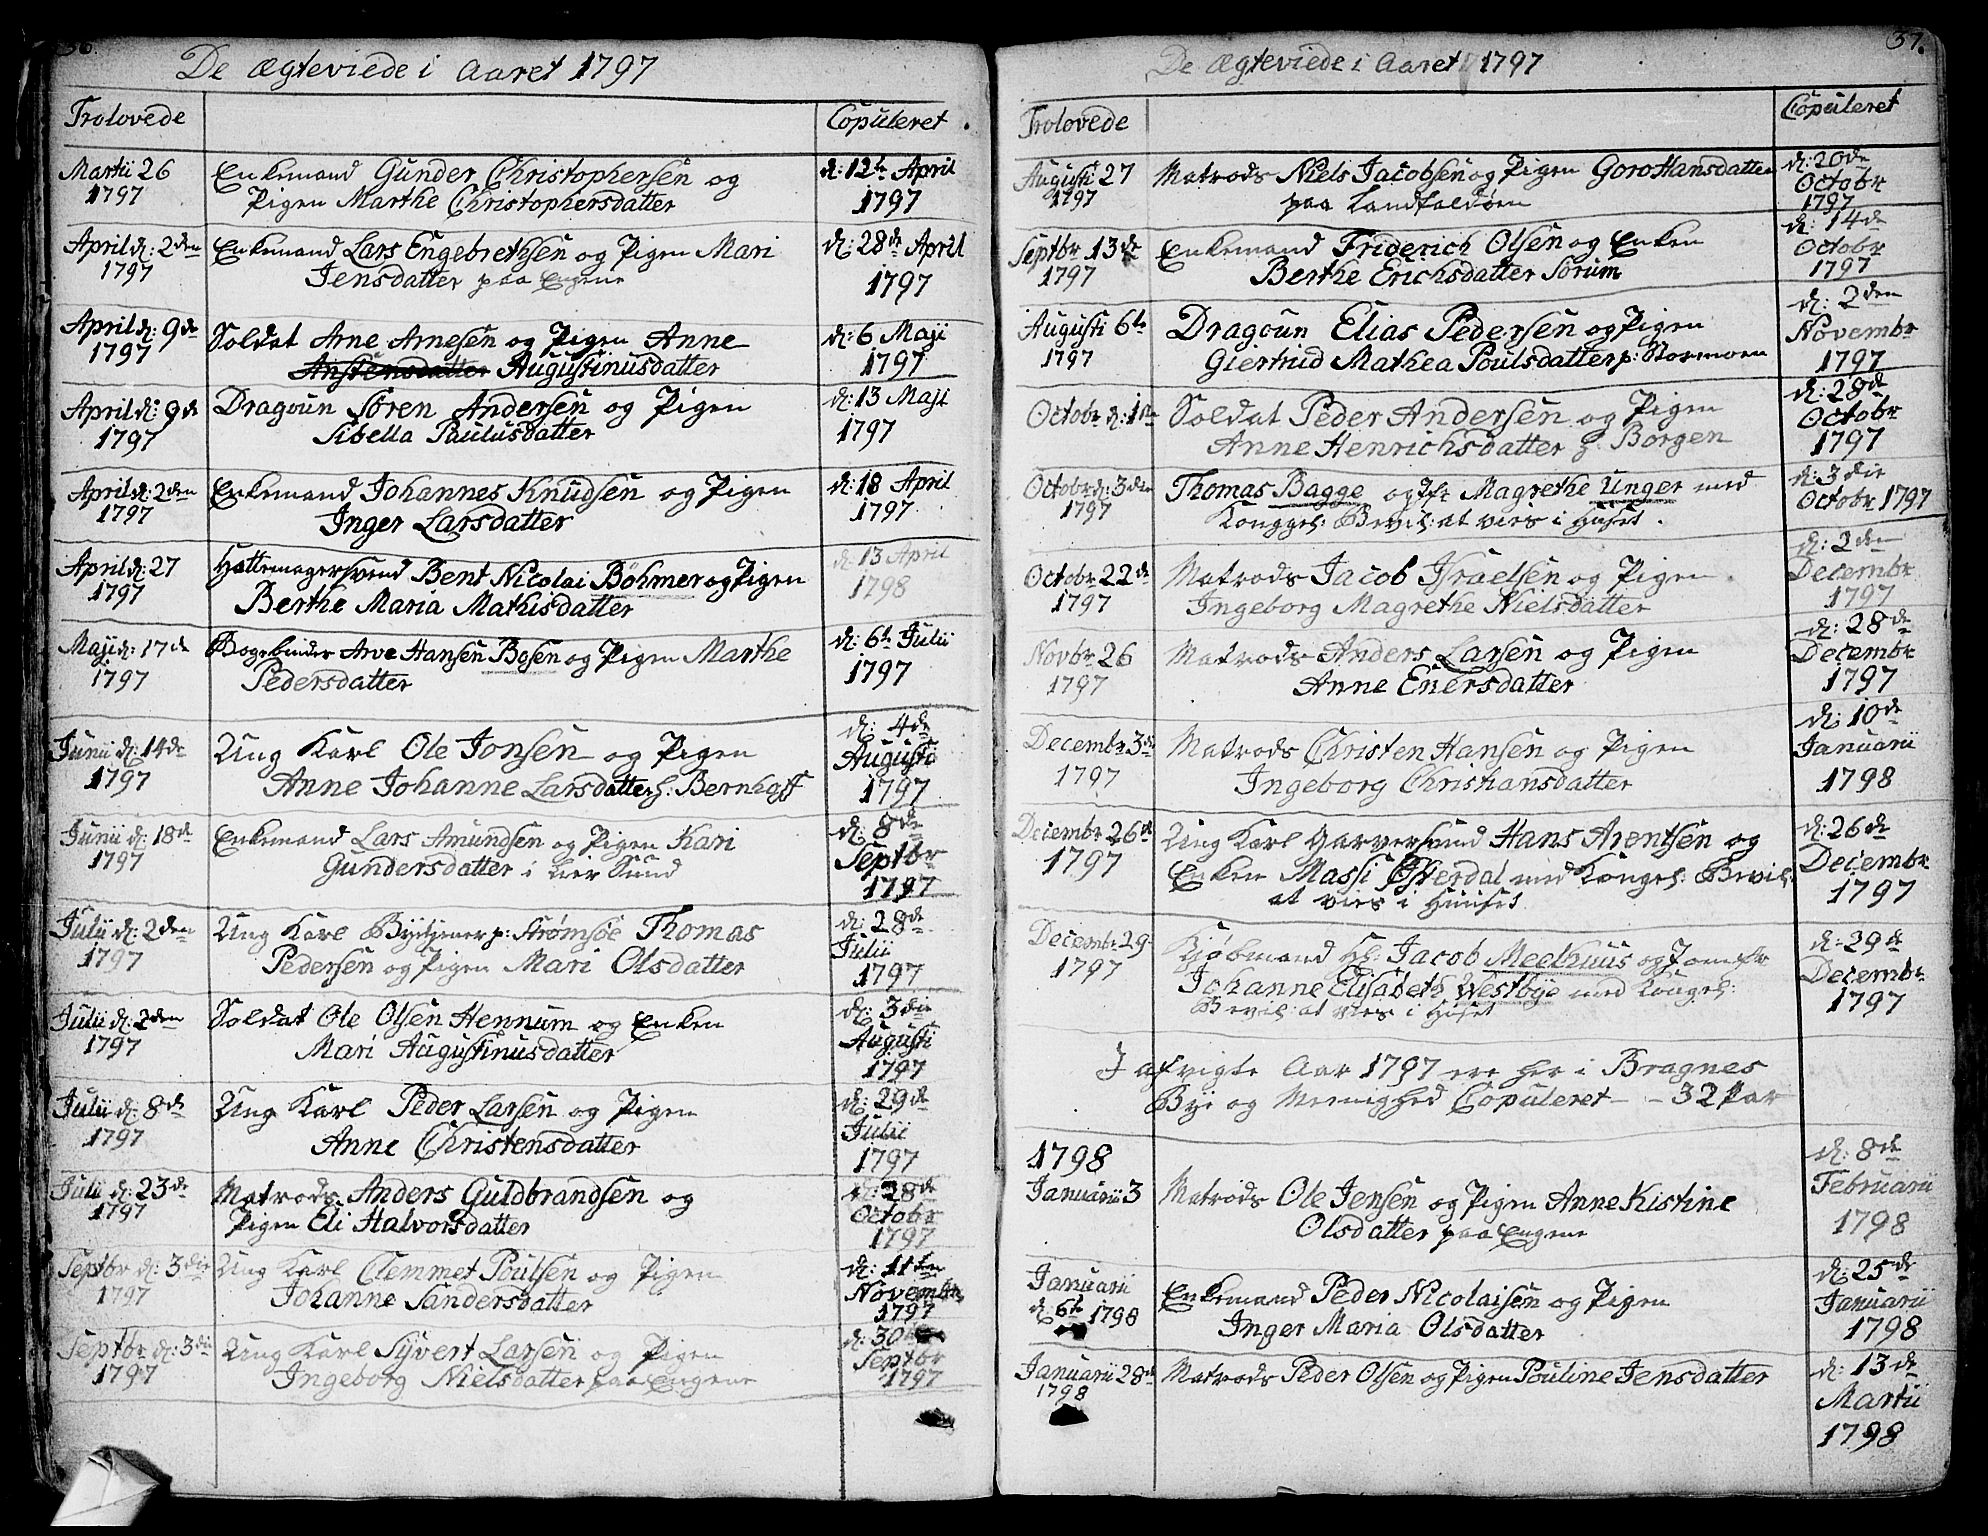 36.
De Ægteviede i Aaret 1797
Trolovede
Copuleret
Martii 26
1797
Enkemand Gunder Christophersen og
Pigen Marthe Christophersdatter
d: 12te April
1797
April d: 2den
1797
Enkemand Lars Engebrethsen og Pigen Mari
Jensdatter paa Engene
d: 28de April
1797
April d: 9de
1797
Soldat Arne Arnesen og Pigen Anne
Anstensdatter Augustinusdatter
d: 6 Maji
1797
April d: 9de
1797
Dragoun Søren Andersen og Pigen
Sibella Paulusdatter
d: 13 Maji
1797
April d: 2den
1797
Enkemand Johannes Knudsen og Pigen
Inger Larsdatter
d: 18 April
1797
April d: 27
1797
Hattemagersvend Bent Nicolai Böhmer og Pigen
Berthe Maria Mathisdatter
d: 13 April
1798
Maji d: 17de
1797
Bogebinder Arve Hansen Bosen og Pigen Marthe
Pedersdatter
d: 6te Julii
1797
Junii d: 14de
1797
Ung Karl Ole Jonsen og Pigen
Anne Johanne Larsdatter h: Bernhoff
d: 4de
Augusti
1797
Junii d: 18de
1797
Enkemand Lars Amundsen og Pigen Kari
Gundersdatter i Lier Sund
d: 8de
Septbr
1797
Julii d: 2den
1797
Ung Karl Bytjener p: Strømsøe Thomas
Pedersen og Pigen Mari Olsdatter
d: 28de
Julii
1797
Julii d: 2den
1797
Soldat Ole Olsen Hennum og Enken
Mari Augustinusdatter
d: 3die
Augusti
1797
Julii d: 8de
1797
Ung Karl Peder Larsen og Pigen
Anne Christensdatter
d: 29de
Julii
1797
Julii d: 23de
1797
Matrods Anders Guldbrandsen og
Pigen Eli Halvorsdatter
d: 28de
Octobr
1797
Septbr d: 3die
1797
Ung Karl Clemmet Poulsen og Pigen
Johanne Sandersdatter
d: 11ten
Novembr
1797
Septbr d: 3die
1797
Ung Karl Syvert Larsen og Pigen
Ingeborg Nielsdatter paa Engene
d: 30
Septbr
1797
37.
De Ægteviede i Aaret 1797
Trolovede
Copuleret
Augusti 27
1797
Matrods Niels Jacobsen og Pigen Goro Hansdatter
paa Landfaldøen
d: 20de
Octobr
1797
Septbr 13de
1797
Enkemand Friderich Olsen og Enken
Berthe Erichsdatter Sørum
d: 14de
Octobr
1797
Augusti 6te
1797
Dragoun Elias Pedersen og Pigen
Giertrud Mathea Poulsdatter p: Stormoen
d: 2den
Novembr
1797
Octobr d: 1ste
Soldat Peder Andersen og Pigen
Anne Henrichsdatter h: Borgen
d: 28de
Octobr
1797
Octobr d: 3die
1797
Thomas Bagge og Jfr Magrethe Unger med
Kongel: Bevil: at vies i Huset.
d: 3die
Octobr 1797
Octobr 22de
1797
Matrods Jacob Israelsen og Pigen
Ingeborg Magrethe Nielsdatter
d: 2den
Decembr
1797
Novbr 26
1797
Matrods Anders Larsen og Pigen
Anne Enersdatter
d: 28de
Decembr
1797
Decembr 3die
1797
Matrods Christen Hansen og Pigen
Ingeborg Christiansdatter
d: 10de
Januarii
1798
Decembr 26de
1797
Ung Karl Garversvend Hans Arentsen og
Enken Massi Østerdal med Kongel: Bevil:
at vies i Huuset
d: 26de
Decembr
1797
Decembr 29
1797
Kjøbmand Hr: Jacob Meelhuus og Jomfr
Johanne Elisabeth Westbye med Kongel:
Bevil: at vies i Huset
d: 29de
Decembr
1797
I afvigte Aar 1797 ere her i Bragnes
Bye og Menighed Copuleret - 32 Par
1798
Januarii 3
Matrods Ole Jensen og Pigen Anne Kistine
Olsdatter paa Engene
d: 8de
Februarii
1798
Januarii
d: 6te 1798
Enkemand Peder Nicolaisen og Pigen
Inger Maria Olsdatter
d: 25de
Januarii
1798
Januarii 28de
1798
Matrods Peder Olsen og Pigen Pouline Jensdatter
d: 13de
Martii
1798